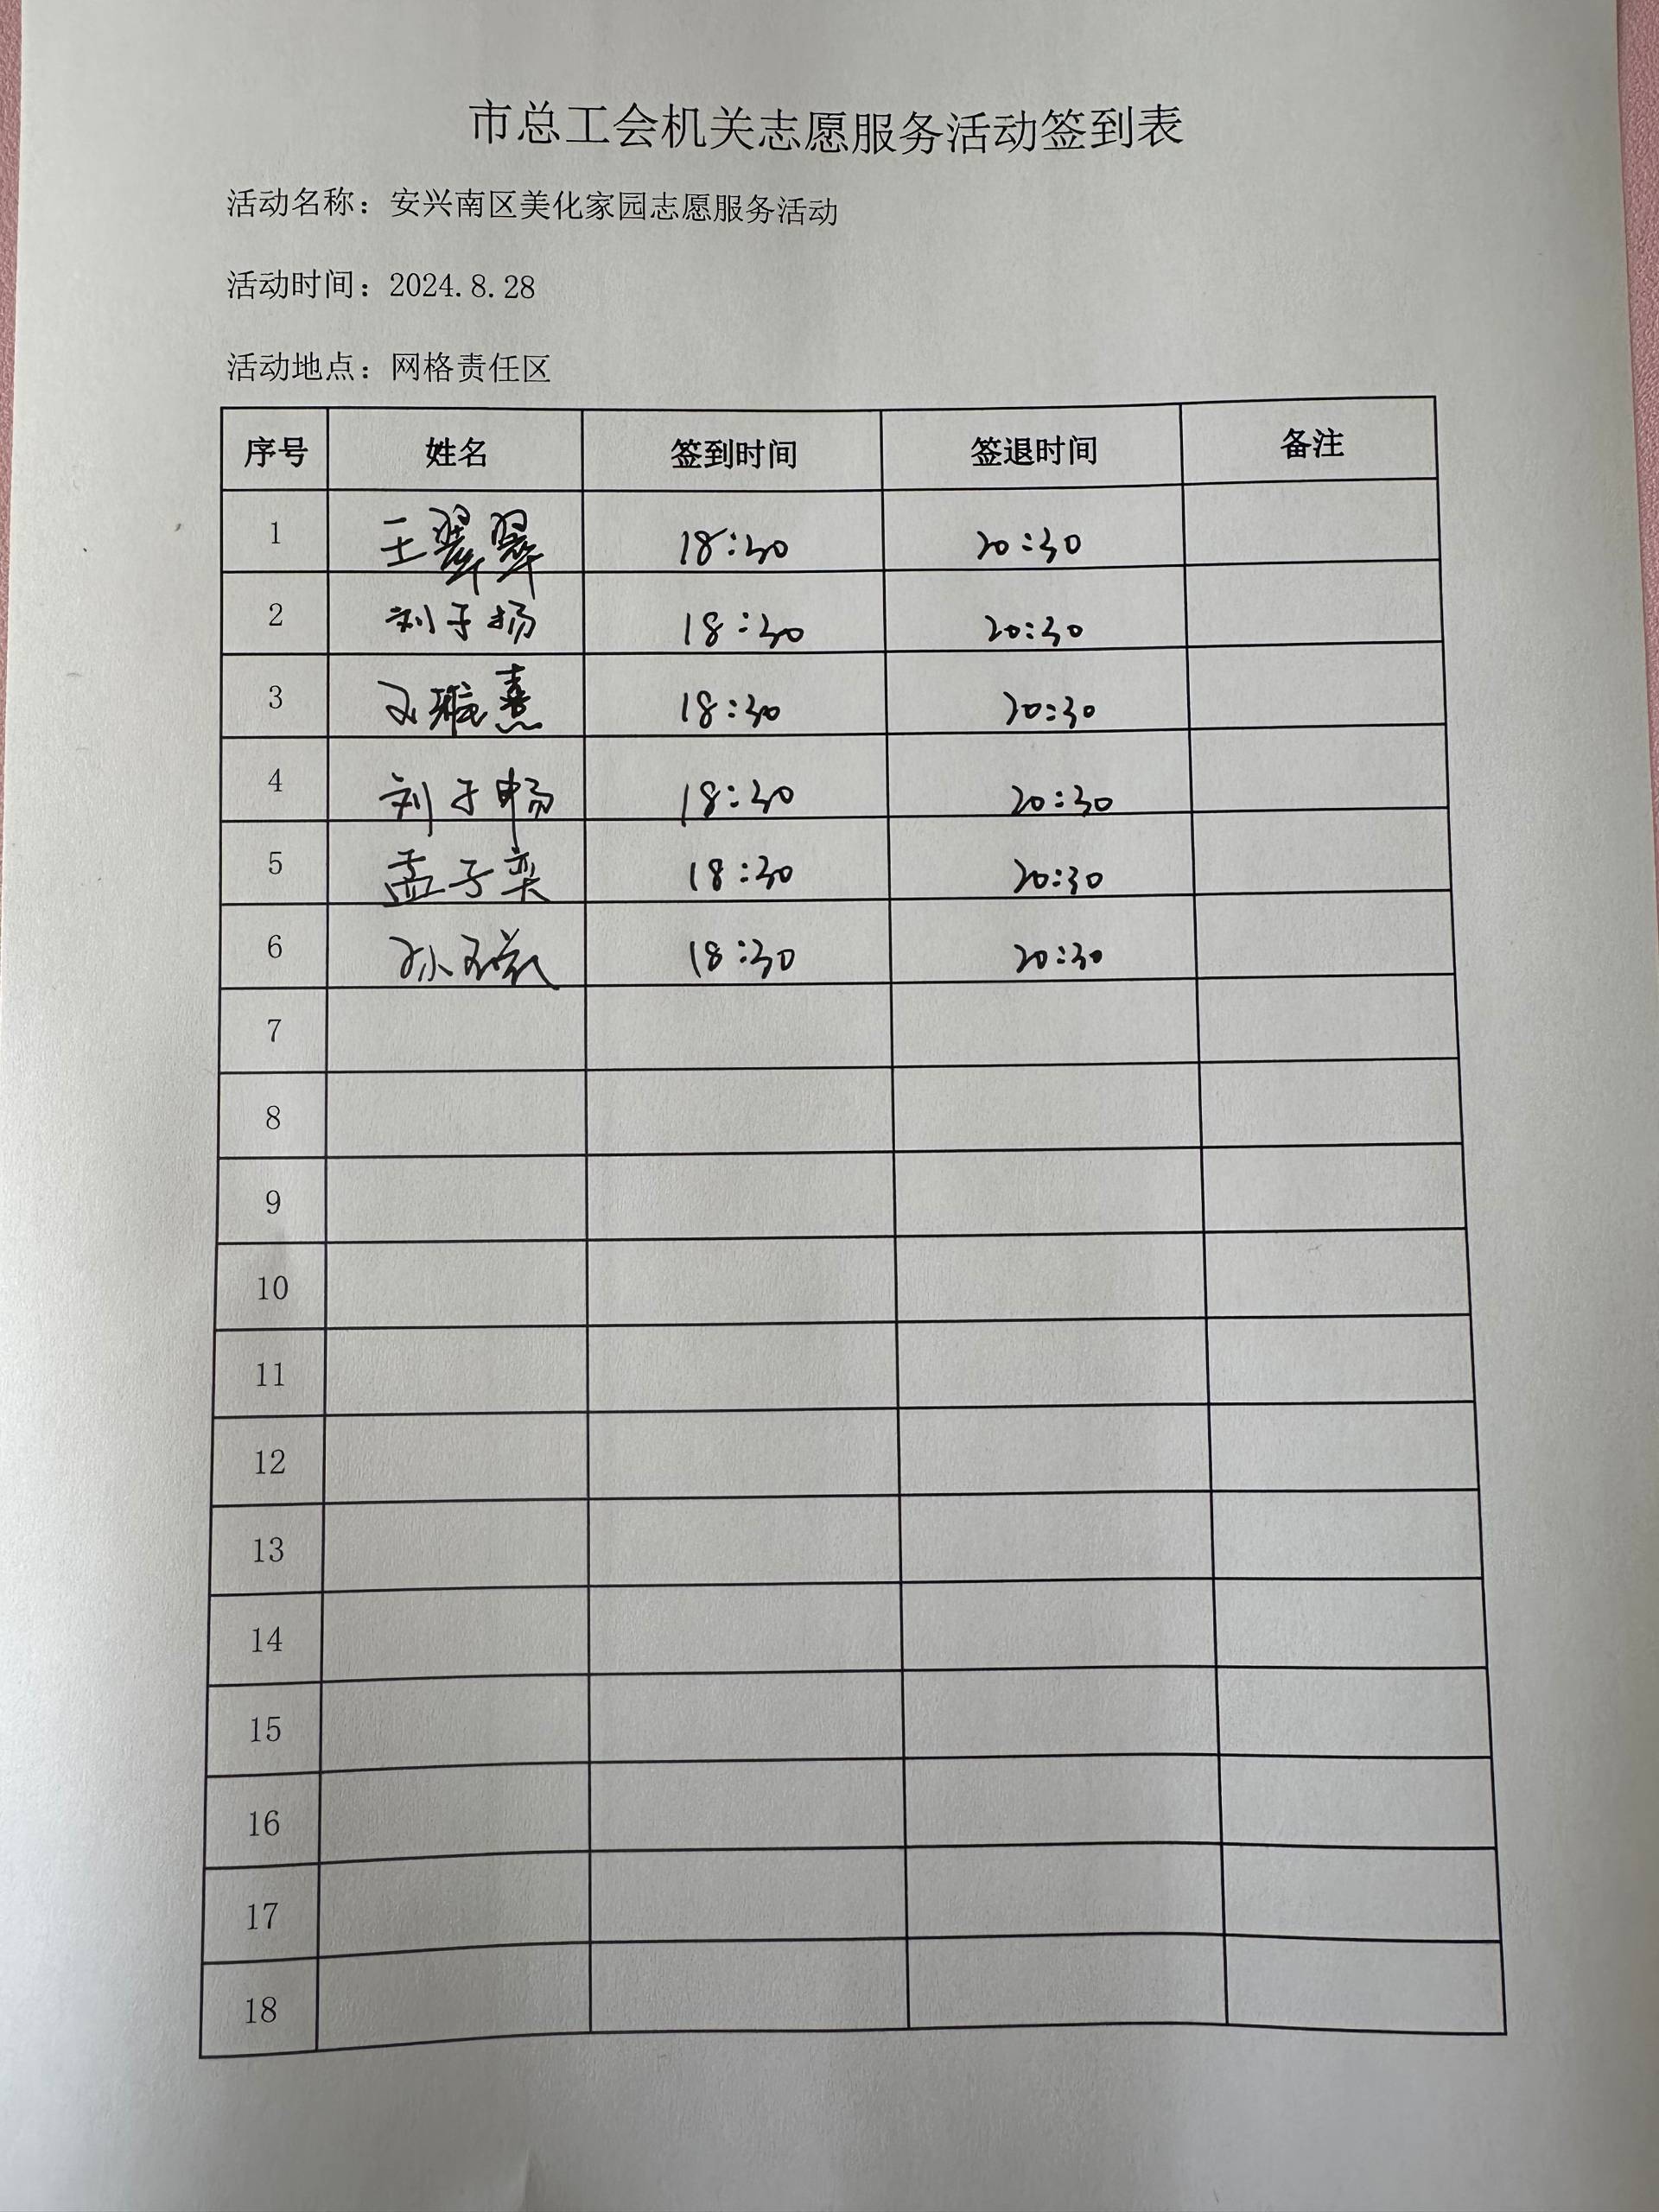 市总工会机关志愿服务活动签到表
活动名称：安兴南区美化家园志愿服务活动
活动时间：2024.8.28
活动地点：网格责任区
序号 姓名 签到时间 签退时间 备注
1 王翠翠 18:30 20:30
2 刘于扬 18:30 20:30
3 18:30 20:30
4 刘于畅 18:30 20:30
5 孟子栾 18:30 20:30
6 18:30 20:30
7
8
9
10
11
12
13
14
15
16
17
18